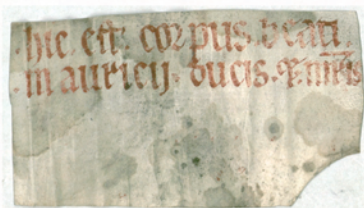 hic. est. corpus. beati
mauricij. ducis.